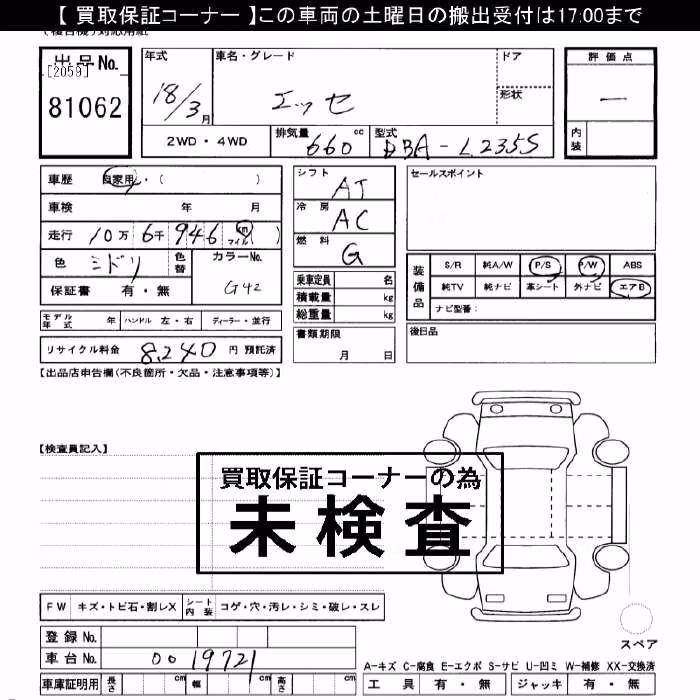 【 買取保証コーナー 】この車両の土曜日の搬出受付は17:00まで
出品No.
[2059]
81062
年式
18/3月
車名・グレード
エッセ
ドア
形状
評価点
—
内装
2WD・4WD
排気量
660cc
型式
DBA-L235S
車歴 自家用・( )
車検 年 月
走行 10万 6千 946 km マイル ( )
色 ミドリ 色替
カラーNo.
G42
保証書 有・無
シフト
AT
冷房
AC
燃料
G
乗車定員 名
積載量 kg
総重量 kg
書類期限
月 日
セールスポイント
装備品
S/R 純A/W P/S P/W ABS
純TV 純ナビ 革シート 外ナビ エアB
ナビ型番:
後日品
モデル年式 年 ハンドル 左・右 ディーラー・並行
リサイクル料金 8,240 円 預託済
【出品店申告欄(不良箇所・欠品・注意事項等)】
【検査員記入】
買取保証コーナーの為
未検査
FW キズ・トビ石・割レX シート内装 コゲ・穴・汚レ・シミ・破レ・スレ
登録No.
車台No. 0019721
車庫証明用 長さ cm 幅 cm 高さ cm
スペア
A-キズ C-腐食 E-エクボ S-サビ U-凹ミ W-補修 XX-交換済
工具 有・無 ジャッキ 有・無